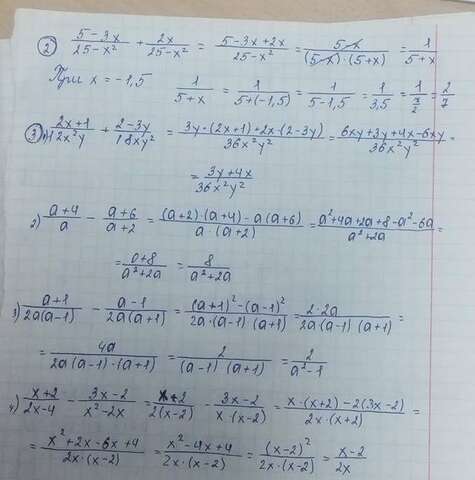 ② (5-3x)/(25-x²) + 2x/(25-x²) = (5-3x+2x)/(25-x²) = (5-x)/((5-x)·(5+x)) = 1/(5+x)
При x = -1,5 1/(5+x) = 1/(5+(-1,5)) = 1/(5-1,5) = 1/3,5 = 1/(7/2) = 2/7
③ 1) (2x+1)/(12x²y) + (2-3y)/(18xy²) = (3y·(2x+1)+2x·(2-3y))/(36x²y²) = (6xy+3y+4x-6xy)/(36x²y²) =
= (3y+4x)/(36x²y²)
2) (a+4)/a - (a+6)/(a+2) = ((a+2)·(a+4)-a(a+6))/(a·(a+2)) = (a²+4a+2a+8-a²-6a)/(a²+2a) =
= (0+8)/(a²+2a) = 8/(a²+2a)
3) (a+1)/(2a(a-1)) - (a-1)/(2a(a+1)) = ((a+1)²-(a-1)²)/(2a·(a-1)·(a+1)) = (2·2a)/(2a(a-1)(a+1)) =
= 4a/(2a(a-1)·(a+1)) = 2/((a-1)(a+1)) = 2/(a²-1)
4) (x+2)/(2x-4) - (3x-2)/(x²-2x) = (x+2)/(2(x-2)) - (3x-2)/(x·(x-2)) = (x·(x+2)-2(3x-2))/(2x·(x+2)) =
= (x²+2x-6x+4)/(2x·(x-2)) = (x²-4x+4)/(2x·(x-2)) = (x-2)²/(2x·(x-2)) = (x-2)/2x